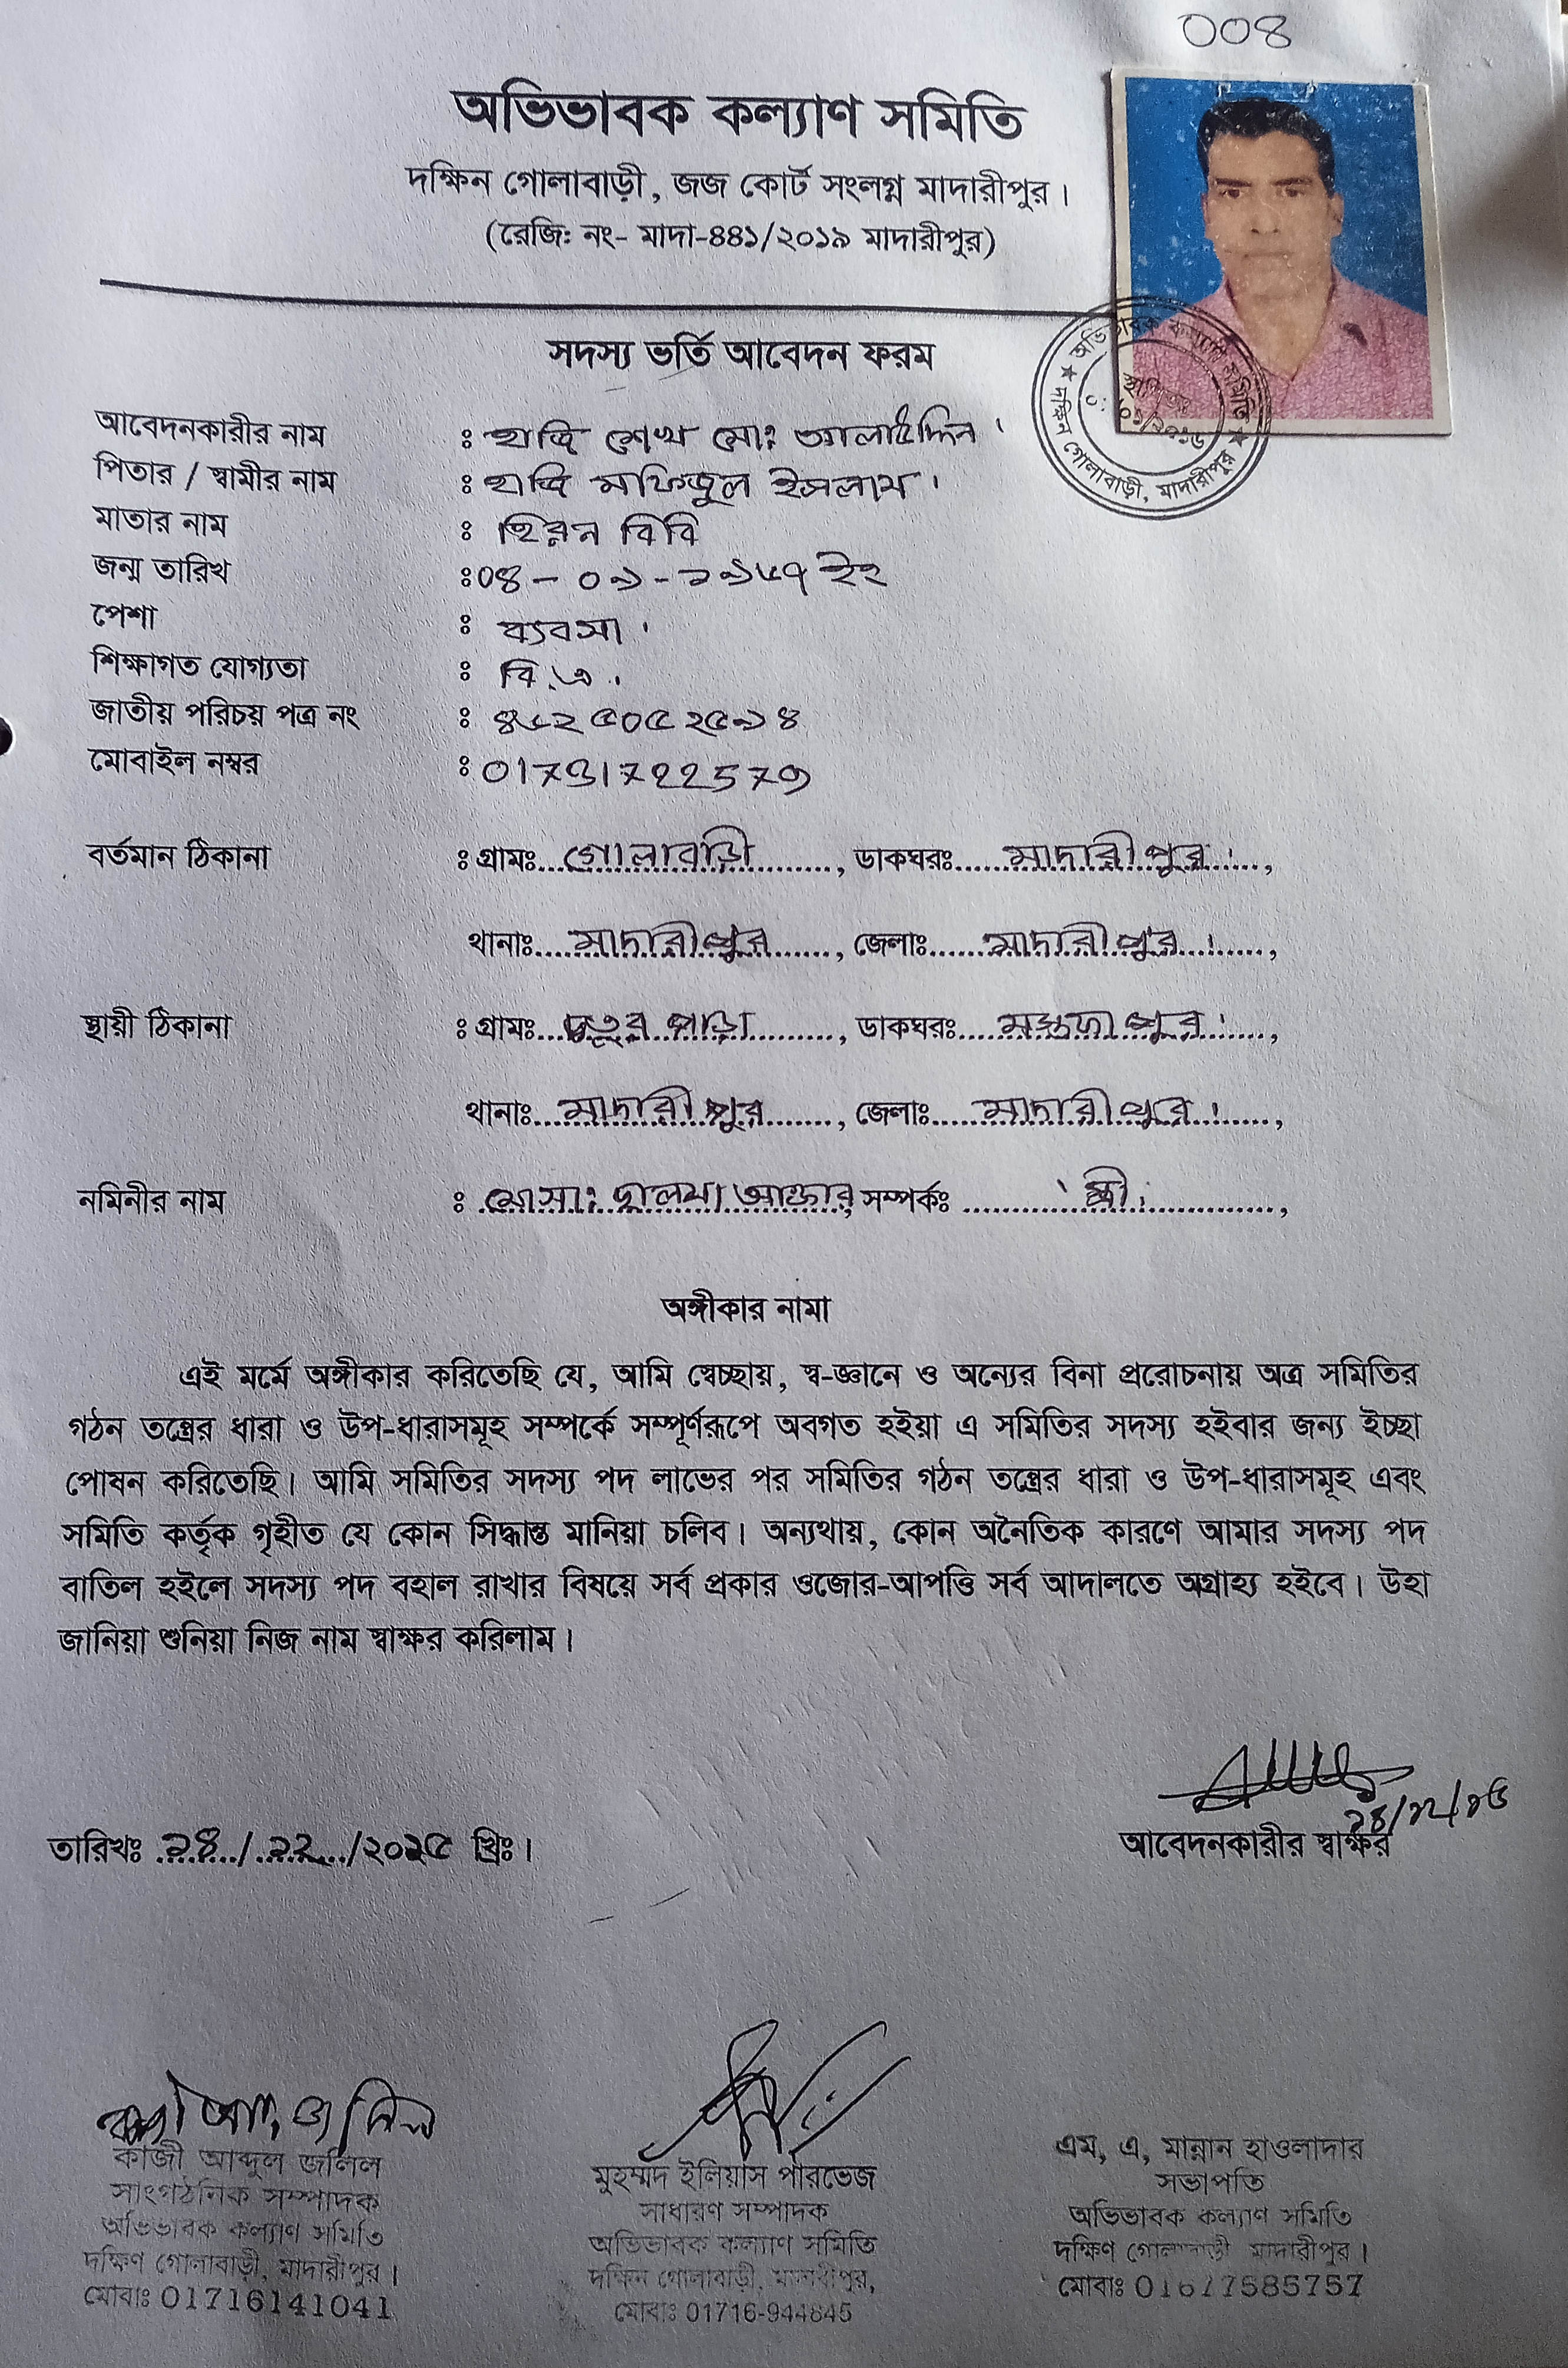 008
অভিভাবক কল্যাণ সমিতি
দক্ষিন গোলাবাড়ী, জজ কোর্ট সংলগ্ন মাদারীপুর।
(রেজিঃ নং- মাদা-৪৪১/২০১৯ মাদারীপুর)
সদস্য ভর্তি আবেদন ফরম
অভিভাবক কল্যাণ সমিতি
স্থাপিতঃ
দক্ষিন গোলাবাড়ী, মাদারীপুর
আবেদনকারীর নাম : হাজি শেখ মোঃ আলাউদ্দিন।
পিতার / স্বামীর নাম : হাজি মফিজুল ইসলাম।
মাতার নাম : হিরন বিবি
জন্ম তারিখ : 0৪ - ০৯ - ১৯৬৭ ইং
পেশা : ব্যবসা।
শিক্ষাগত যোগ্যতা : বি.এ.
জাতীয় পরিচয় পত্র নং : ৪৬২৫০৫২৫৯৪
মোবাইল নম্বর : 01731722579
বর্তমান ঠিকানা : গ্রামঃ গোলাবাড়ী, ডাকঘরঃ মাদারীপুর।,
থানাঃ মাদারীপুর, জেলাঃ মাদারীপুর।,
স্থায়ী ঠিকানা : গ্রামঃ পাড়া, ডাকঘরঃ
থানাঃ মাদারীপুর, জেলাঃ মাদারীপুর।,
নমিনীর নাম : মোসাঃ আক্তার, সম্পর্কঃ স্ত্রী.,
অঙ্গীকার নামা
এই মর্মে অঙ্গীকার করিতেছি যে, আমি স্বেচ্ছায়, স্ব-জ্ঞানে ও অন্যের বিনা প্ররোচনায় অত্র সমিতির
গঠন তন্ত্রের ধারা ও উপ-ধারাসমূহ সম্পর্কে সম্পূর্ণরূপে অবগত হইয়া এ সমিতির সদস্য হইবার জন্য ইচ্ছা
পোষন করিতেছি। আমি সমিতির সদস্য পদ লাভের পর সমিতির গঠন তন্ত্রের ধারা ও উপ-ধারাসমূহ এবং
সমিতি কর্তৃক গৃহীত যে কোন সিদ্ধান্ত মানিয়া চলিব। অন্যথায়, কোন অনৈতিক কারণে আমার সদস্য পদ
বাতিল হইলে সদস্য পদ বহাল রাখার বিষয়ে সর্ব প্রকার ওজোর-আপত্তি সর্ব আদালতে অগ্রাহ্য হইবে। উহা
জানিয়া শুনিয়া নিজ নাম স্বাক্ষর করিলাম।
তারিখঃ ২৪/১২/২০২৫ খ্রিঃ।
আবেদনকারীর স্বাক্ষর
কাজী আঃ জলিল
কাজী আব্দুল জলিল
সাংগঠনিক সম্পাদক
অভিভাবক কল্যাণ সমিতি
দক্ষিণ গোলাবাড়ী, মাদারীপুর।
মোবাঃ 01716141041
মুহম্মদ ইলিয়াস পারভেজ
সাধারণ সম্পাদক
অভিভাবক কল্যাণ সমিতি
দক্ষিন গোলাবাড়ী, মাদারীপুর,
মোবাঃ 01716-944845
এম, এ, মান্নান হাওলাদার
সভাপতি
অভিভাবক কল্যাণ সমিতি
দক্ষিণ গোলাবাড়ী মাদারীপুর।
মোবাঃ 01677585757